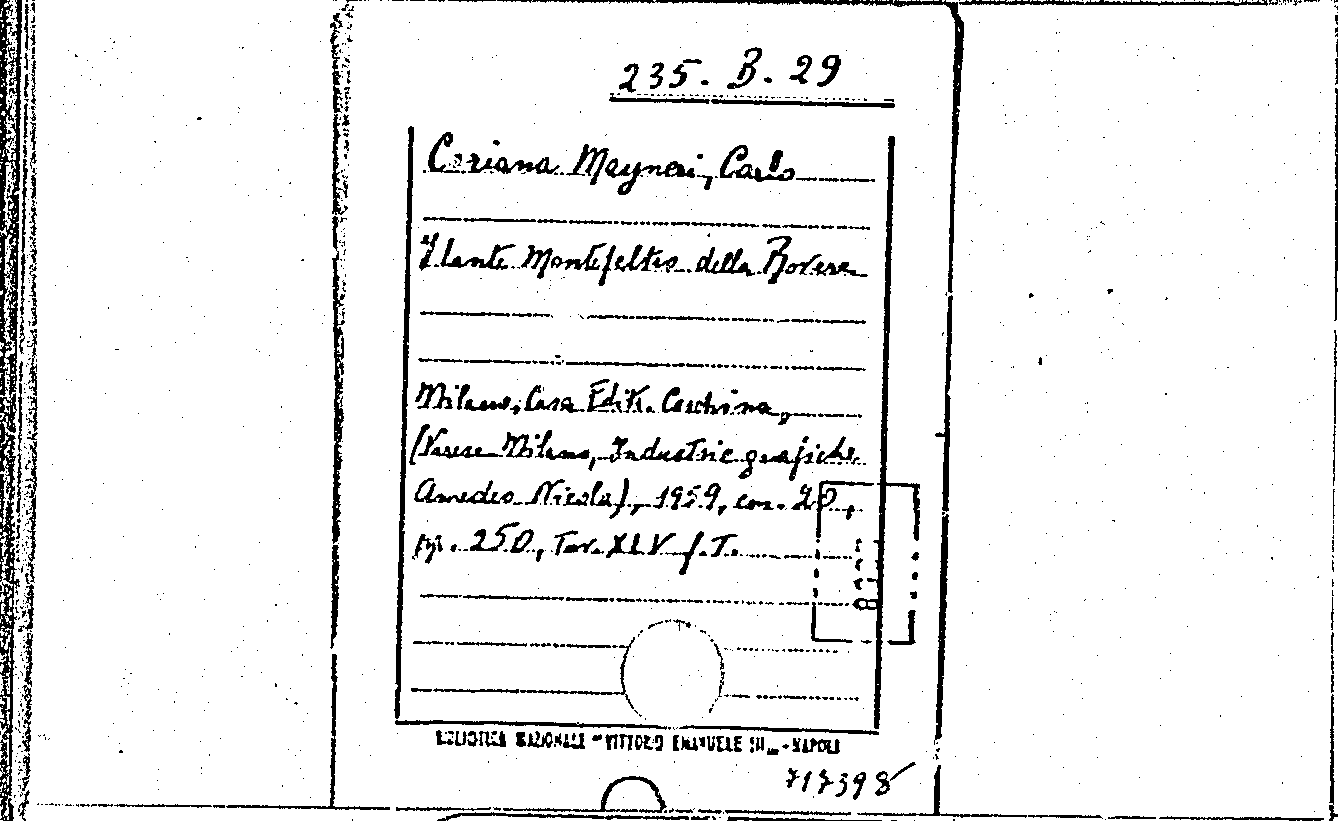 235. B. 29
Ceriana Mayneri, Carlo
Ilante Montefeltro della Rovere
Milano, Casa Edit. Ceschina,
(Varese Milano, Industrie grafiche
Amedeo Nicola), 1959, cm. 20,
pp. 250, Tav. XLV f.T.
BIBLIOTECA NAZIONALE "VITTORIO EMANUELE III" - NAPOLI
717398